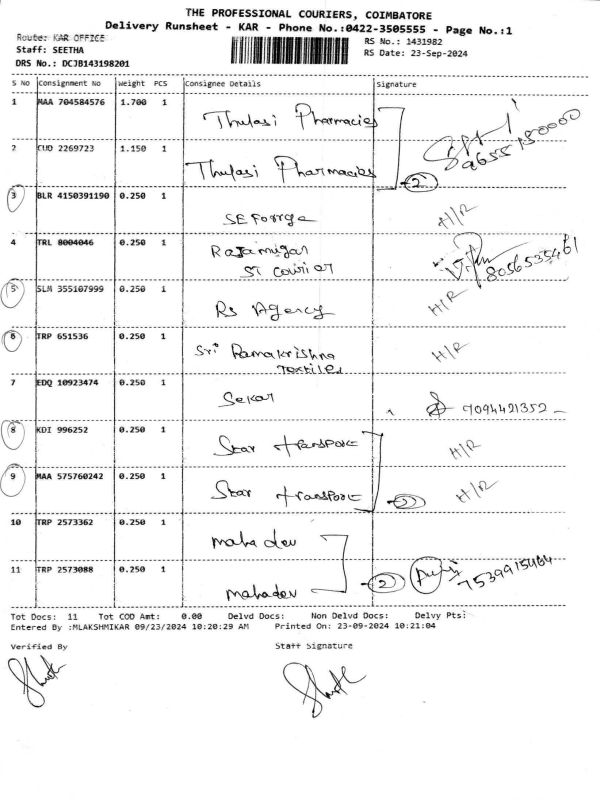 THE PROFESSIONAL COURIERS, COIMBATORE
Delivery Runsheet - KAR - Phone No.:0422-3505555 - Page No.:1
Route: KAR OFFICE
RS No.: 1431982
Staff: SEETHA
RS Date: 23-Sep-2024
DRS No.: DCJB143198201
S No Consignment No Weight PCS Consignee Details Signature
1 MAA 704584576 1.700 1 Thulasi Pharmacies
2 CUD 2269723 1.150 1 Thulasi Pharmacies 2 9655150000
3 BLR 4150391190 0.250 1 SEForrge H/R
4 TRL 8004046 0.250 1 Rajamigar
ST Courier 8056535461
5 SLM 355107999 0.250 1 Rs Agency H/R
6 TRP 651536 0.250 1 Sri Ramakrishna H/R
Textiles
7 EDQ 10923474 0.250 1 Sekar 7094421352
8 KDI 996252 0.250 1 Star transport H/R
9 MAA 575760242 0.250 1 Star transport H/R
10 TRP 2573362 0.250 1 mahadev
11 TRP 2573088 0.250 1 mahadev 2 7539915464
Tot Docs: 11 Tot COD Amt: 0.00 Delvd Docs: Non Delvd Docs: Delvy Pts:
Entered By :MLAKSHMIKAR 09/23/2024 10:20:29 AM Printed On: 23-09-2024 10:21:04
Verified By Staff Signature